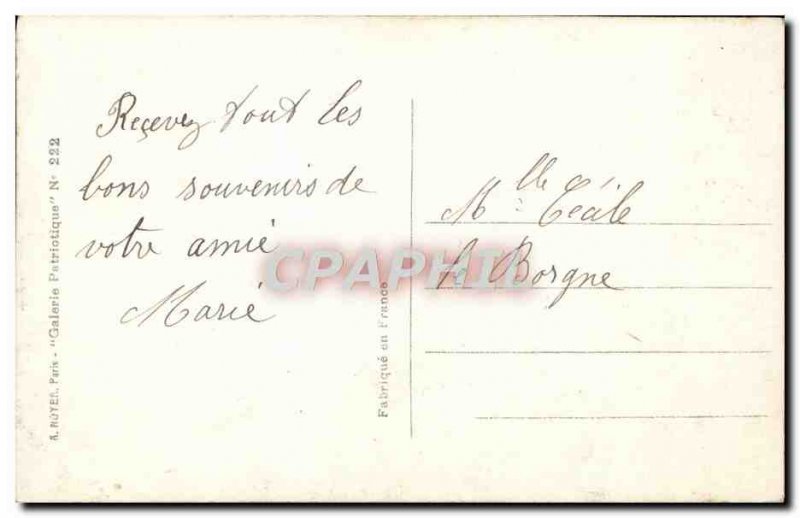 Reçevez tout les
bons souvenirs de
votre amié
Marié
Mlle Cécile
le Borgne
A. NOYER, Paris - "Galerie Patriotique" N° 222
Fabriqué en France
CPAPHIL